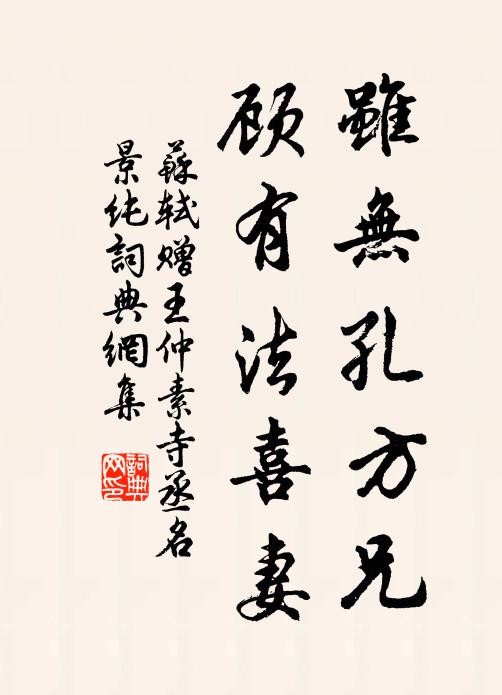 雖無孔方兄
顾有法喜妻
蘇轼赠王仲素寺丞名
景纯詞典網集
詞典
网印